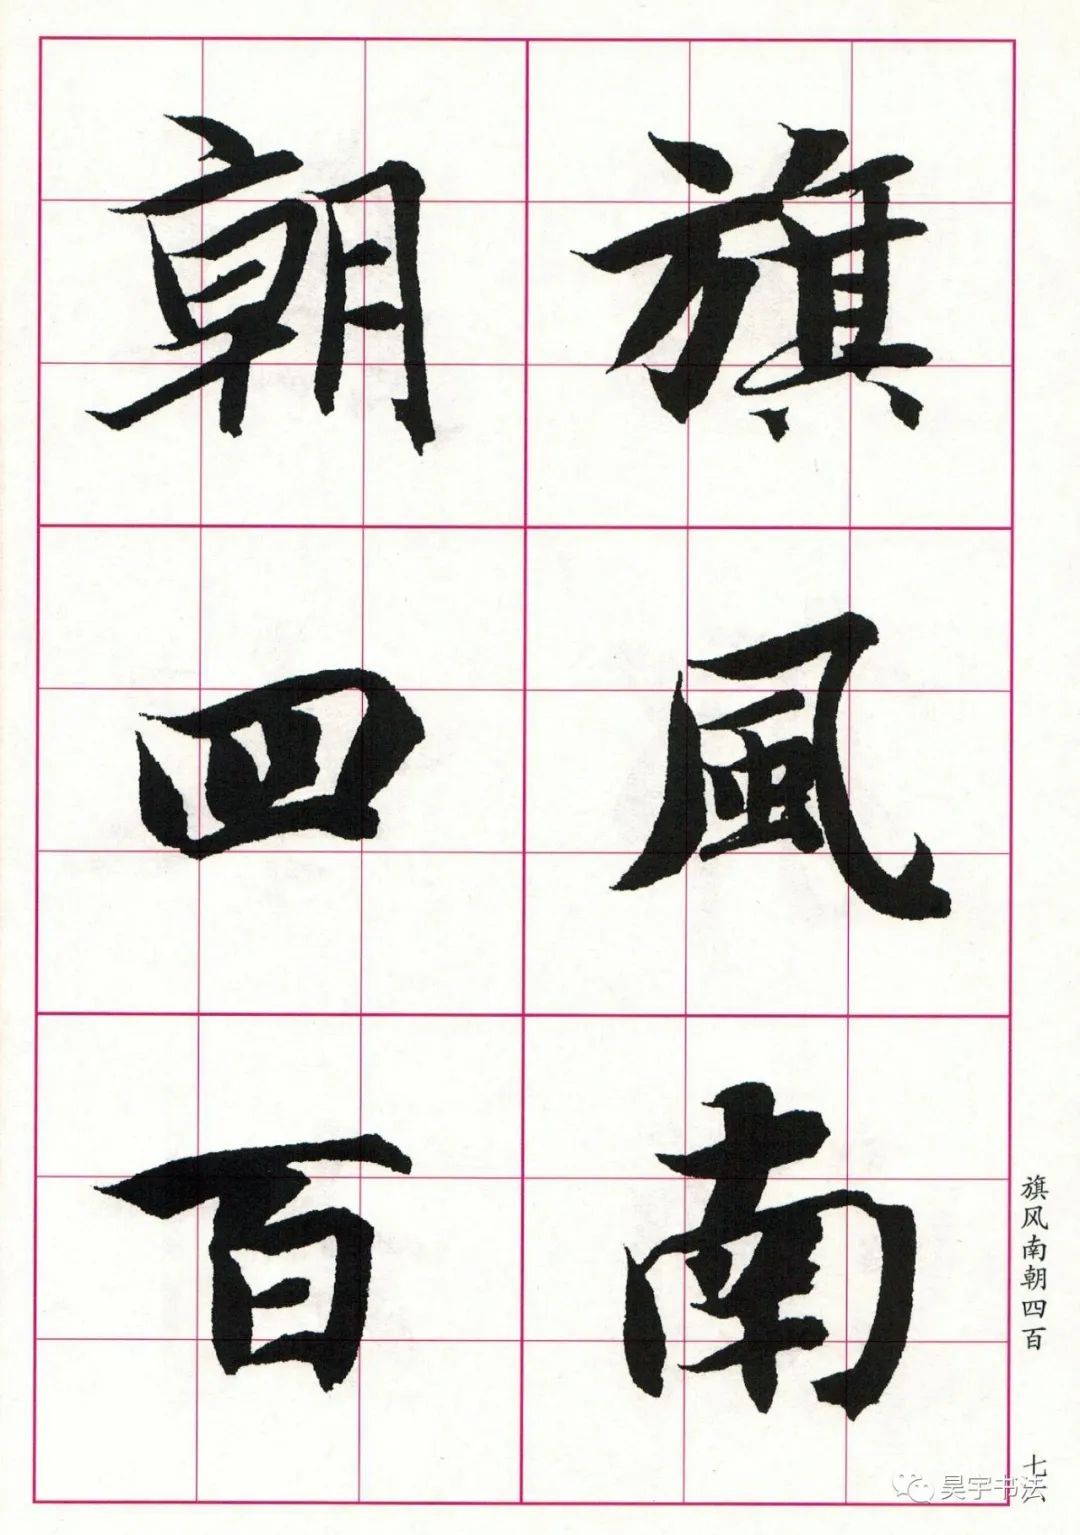 旗風南
朝四百
旗风南朝四百
七六
昊宇书法